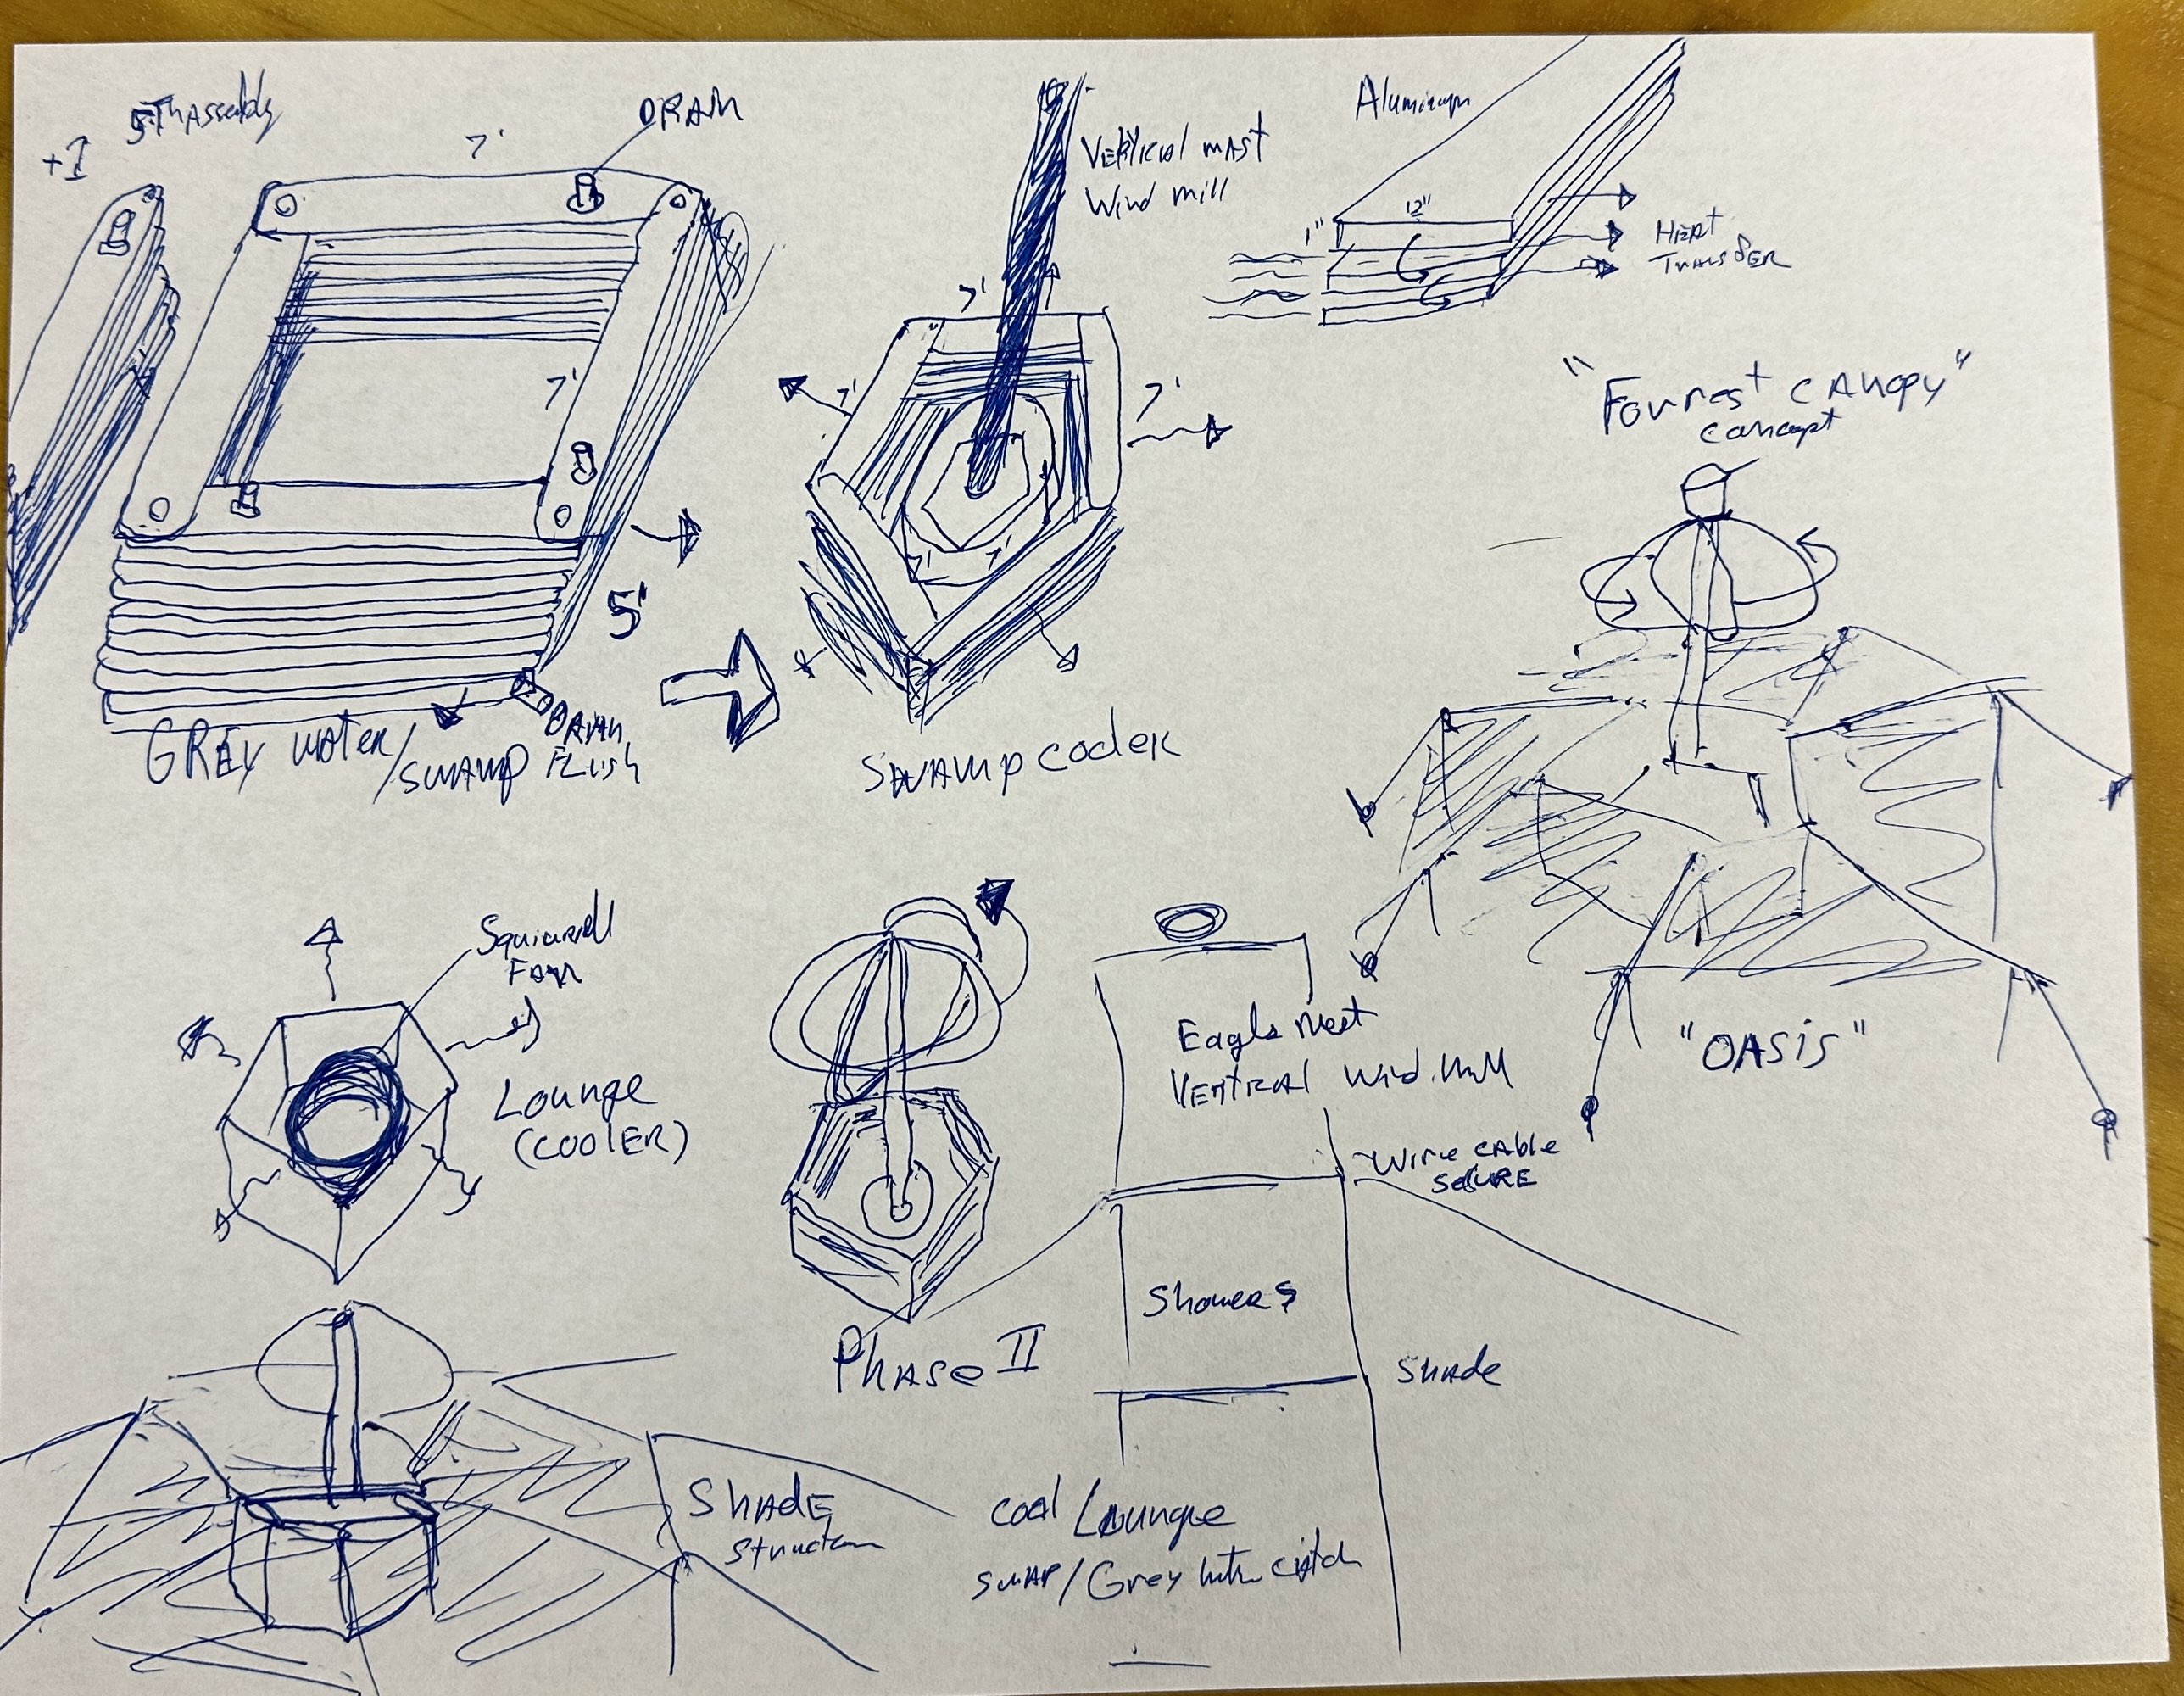 +1
DRAIN
7'
7'
5'
GREY water/
SWAMP
DRAIN
Flush
Vertical mast
Wind mill
7'
7'
7'
7'
7'
SWAMP cooler
Aluminum
12"
1"
HEAT
TRANSFER
"Forrest CANOPY"
concept
"OASIS"
Squirrell
FAN
Lounge
(COOlER)
Phase II
Eagle Nest
VERTICAL Wind Mill
Wire CABle
SECURE
Showers
SHAde
SHAdE
Structure
Cool Lounge